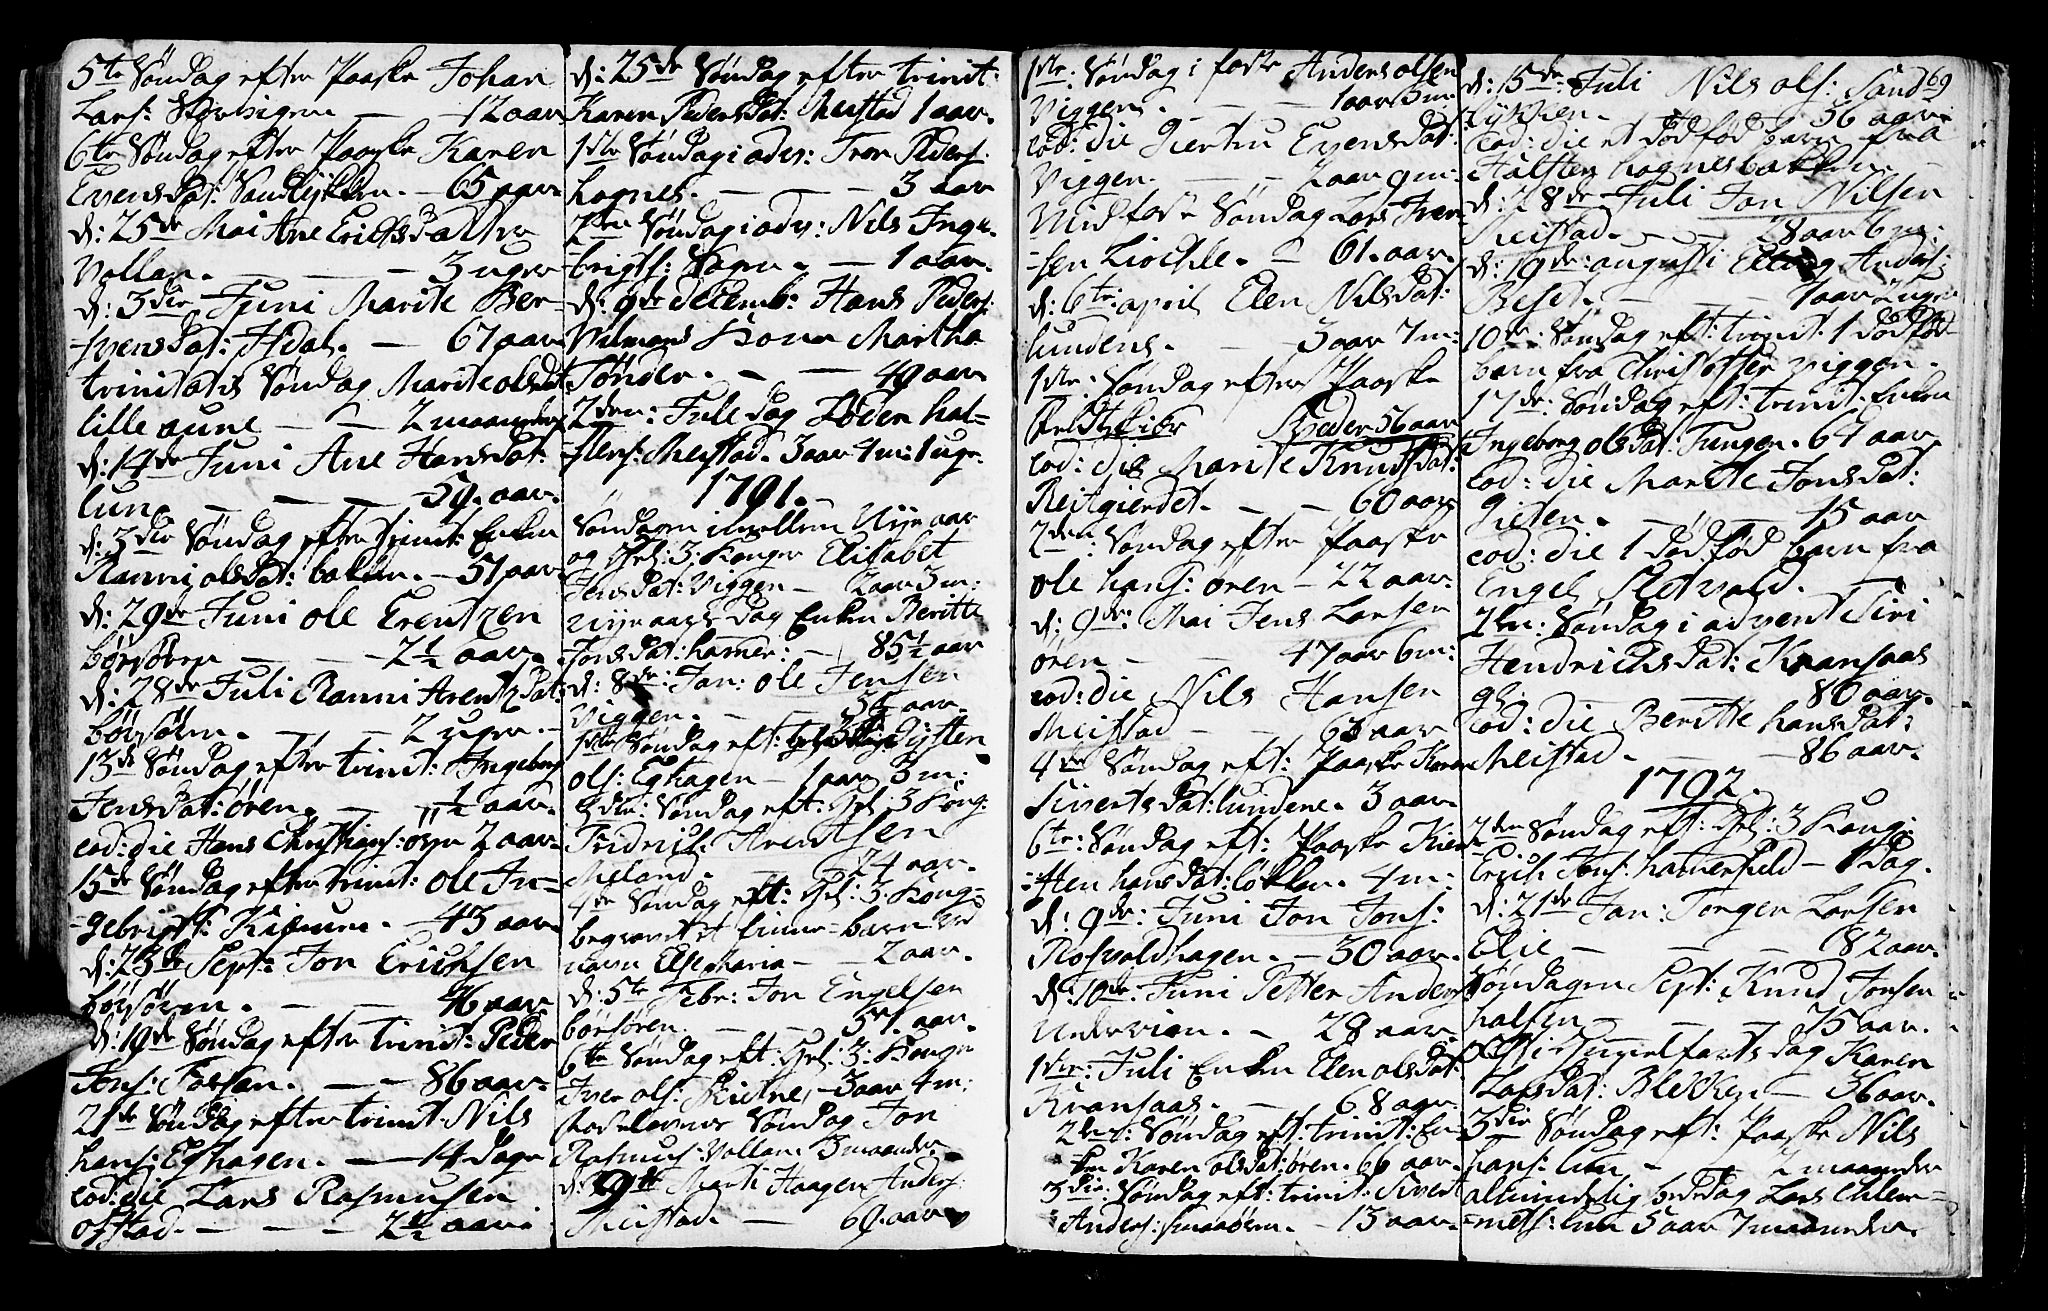 5te Søndag efter Paaske Johan
Lars: Storhigen — 12 aar
6te Søndag efter Paaske Karen
EvensDat: Sandlykken. — 65 aar
d: 25de Mai Ane ErichsDatter
Vollan. — — — 3 uger
d: 3die Juni Marite Ber-
-svensDat: Asdal. — 67 aar
trinitatis Søndag Marite olsdat
lille aune — — 2 maaneder
d: 14de Juni Ane HansDat:
lun. — — — 59. aar.
d: 3die Søndag efter trinit: Enken
Ranni olsDat: bakken. — 57 aar.
d: 29de Juni ole Erentzen
børsøren — — 2½ aar.
d: 28de Juli Ranni ArentzDat:
børsøren. — — 2 uger. —
13de Søndag efter trinit: Ingeborg
JensDat: ören. — „ ½ aar.
eod: die Hans Christians: øyn 2 aar.
15de Søndag efter trinit: ole In=
-gebrigts: — 43 aar.
d: 23de Sept: Jon Erichsen
börsören. — — 46 aar
d: 19de Søndag efter trinit: Peder
Jons: Forsan. — — 86 aar.
21de Søndag efter trinit: Nils
hans: Eghagen. — 14 dage
eod: die Lars Rasmusen
ofstad. — — — 2½ aar
d: 25de Søndag efter trinit:
Karen PedersDat: Meistad 1 aar.
1ste Søndag i adv: Iver Peders:
hognes. — — — 3 aar
2den Søndag i adv: Nils Inge-
-brigts: — 1 aar.
d: 9de decemb: Hans Peders:
Vilmans Kone Martha
Tønder. — — 49 aar
2den: Jule dag Loden hal=
-stens: Meistad. 3 aar 4 m: 1 uge.
1791.
Søndagen imellem Nyeaar
og Hel: 3: Konger Elisabet
JensDat: Viggen — 2 aar 3 m:
nyeaars Dag Enken Beritte
JonsDat: hamer: — 85½ aar
d: 8de: Jan: ole Jensen
Viggen. — — 56 aar.
1ste Søndag eft: Øisten
ols: Eghagen — 1 aar 3 m:
3die: Søndag eft: Hel: 3 Kong:
Fridrich Arentsen
Meland. — — 24 aar.
4de Søndag eft: Hel: 3: Kong=
begravet et finne-barn ved
navn Else Maria — 2 aar.
d: 5te Febr: Jon Engelsen
börsören. — — 57. aar.
6te Søndag eft: Hel: 3: Konger
Iver ols: Skielne, — 3 aar 4 m:
Fastelavns Søndag Jon
Rasmus: Vollan. 3 maaneder
d: 9de Marti Haagen Anders:
Meistad. — 69. aar
1ste: Søndag i faste Anders olsen
Viggen. — — 1 aar 3 m:
eod: die Giertru EvensDat:
Viggen. — — 2 aar 9 m:
Midfaste Søndag Lars Iver
-sen Liochle. — 61. aar.
d: 6te: april Elen NilsDat:
lundens. — 3 aar 7 m:
1ste: Søndag efter Paaske
Peder 56 aar
eod: die Marite KnudsDat:
Reitgierdet. — — 60 aar
2den: Søndag efter Paaske
ole hans: ören — 22 aar.
d: 9de: Mai Jens Larsen
ören — — 47 aar 6 m:
eod: die Nils Hansen
Meistad — — 63 aar
4de Søndag eft: Paaske Karen
SivertsDat: lundene. 3 aar
6te: Søndag eft: Paaske Kier
-sten hansDat: lökken. 4 m:
d: 9de: Juni Jon Jons:
Rosvoldhagen. — 30 aar.
d: 10de: Juni Petter Anders:
Undervien. — 28 aar.
1ste: Juli Enken Elen olsDat:
Kransaas. — 68 aar
2den: Søndag eft: trinit: En-
-ken Karen olsDat: ören. 66 aar.
3die: Søndag eft: trinit: Sivert
Anders: smaaören. — 13 aar.
169
d: 15de: Juli Nils ols: Sand
lykken. — — 56 aar
eod: die et dødfød barn fra
Halsten hognesbakken. —
d: 28de Juli Jon Nilsen
Meistad. — — 28 aar 6 m:
d: 19de: augusti Elling Anders:
Beset. — — 1 aar 2 uger
10de: Søndag eft: trinit: 1 dødfød
barn fra Christoffer Viggen.
17de: Søndag eft: trinit. Enken
Ingeborg olsDat: Tungen. 64 aar
eod: die Marite JonsDat:
Gieten. — — 15 aar
eod: die 1 dødfød barn fra
Engel Sletvold. —
2den: Søndag i advent Siri
HendrichsDat: Kransaas
80 aar.
eod: die Beritte hansDat:
Meistad. — — 86 aar.
1792.
2den Søndag eft: Hel: 3 Kong:
Erich Jons: hamerfield — 1 dag.
d: 21de Jan: Torger Larsen
Elie — — — 82 aar.
Søndagen Sept: Knud Jonsen
halsen — — — 75 aar.
Christi himmelfarts dag Karen
LarsDat: Blekken — 36 aar.
3die Søndag eft: Paaske Nils
hans: lun — — 2 maaneder
almindelig bededag Lars Clem=
-mets: lun 5 aar 7 maaneder.